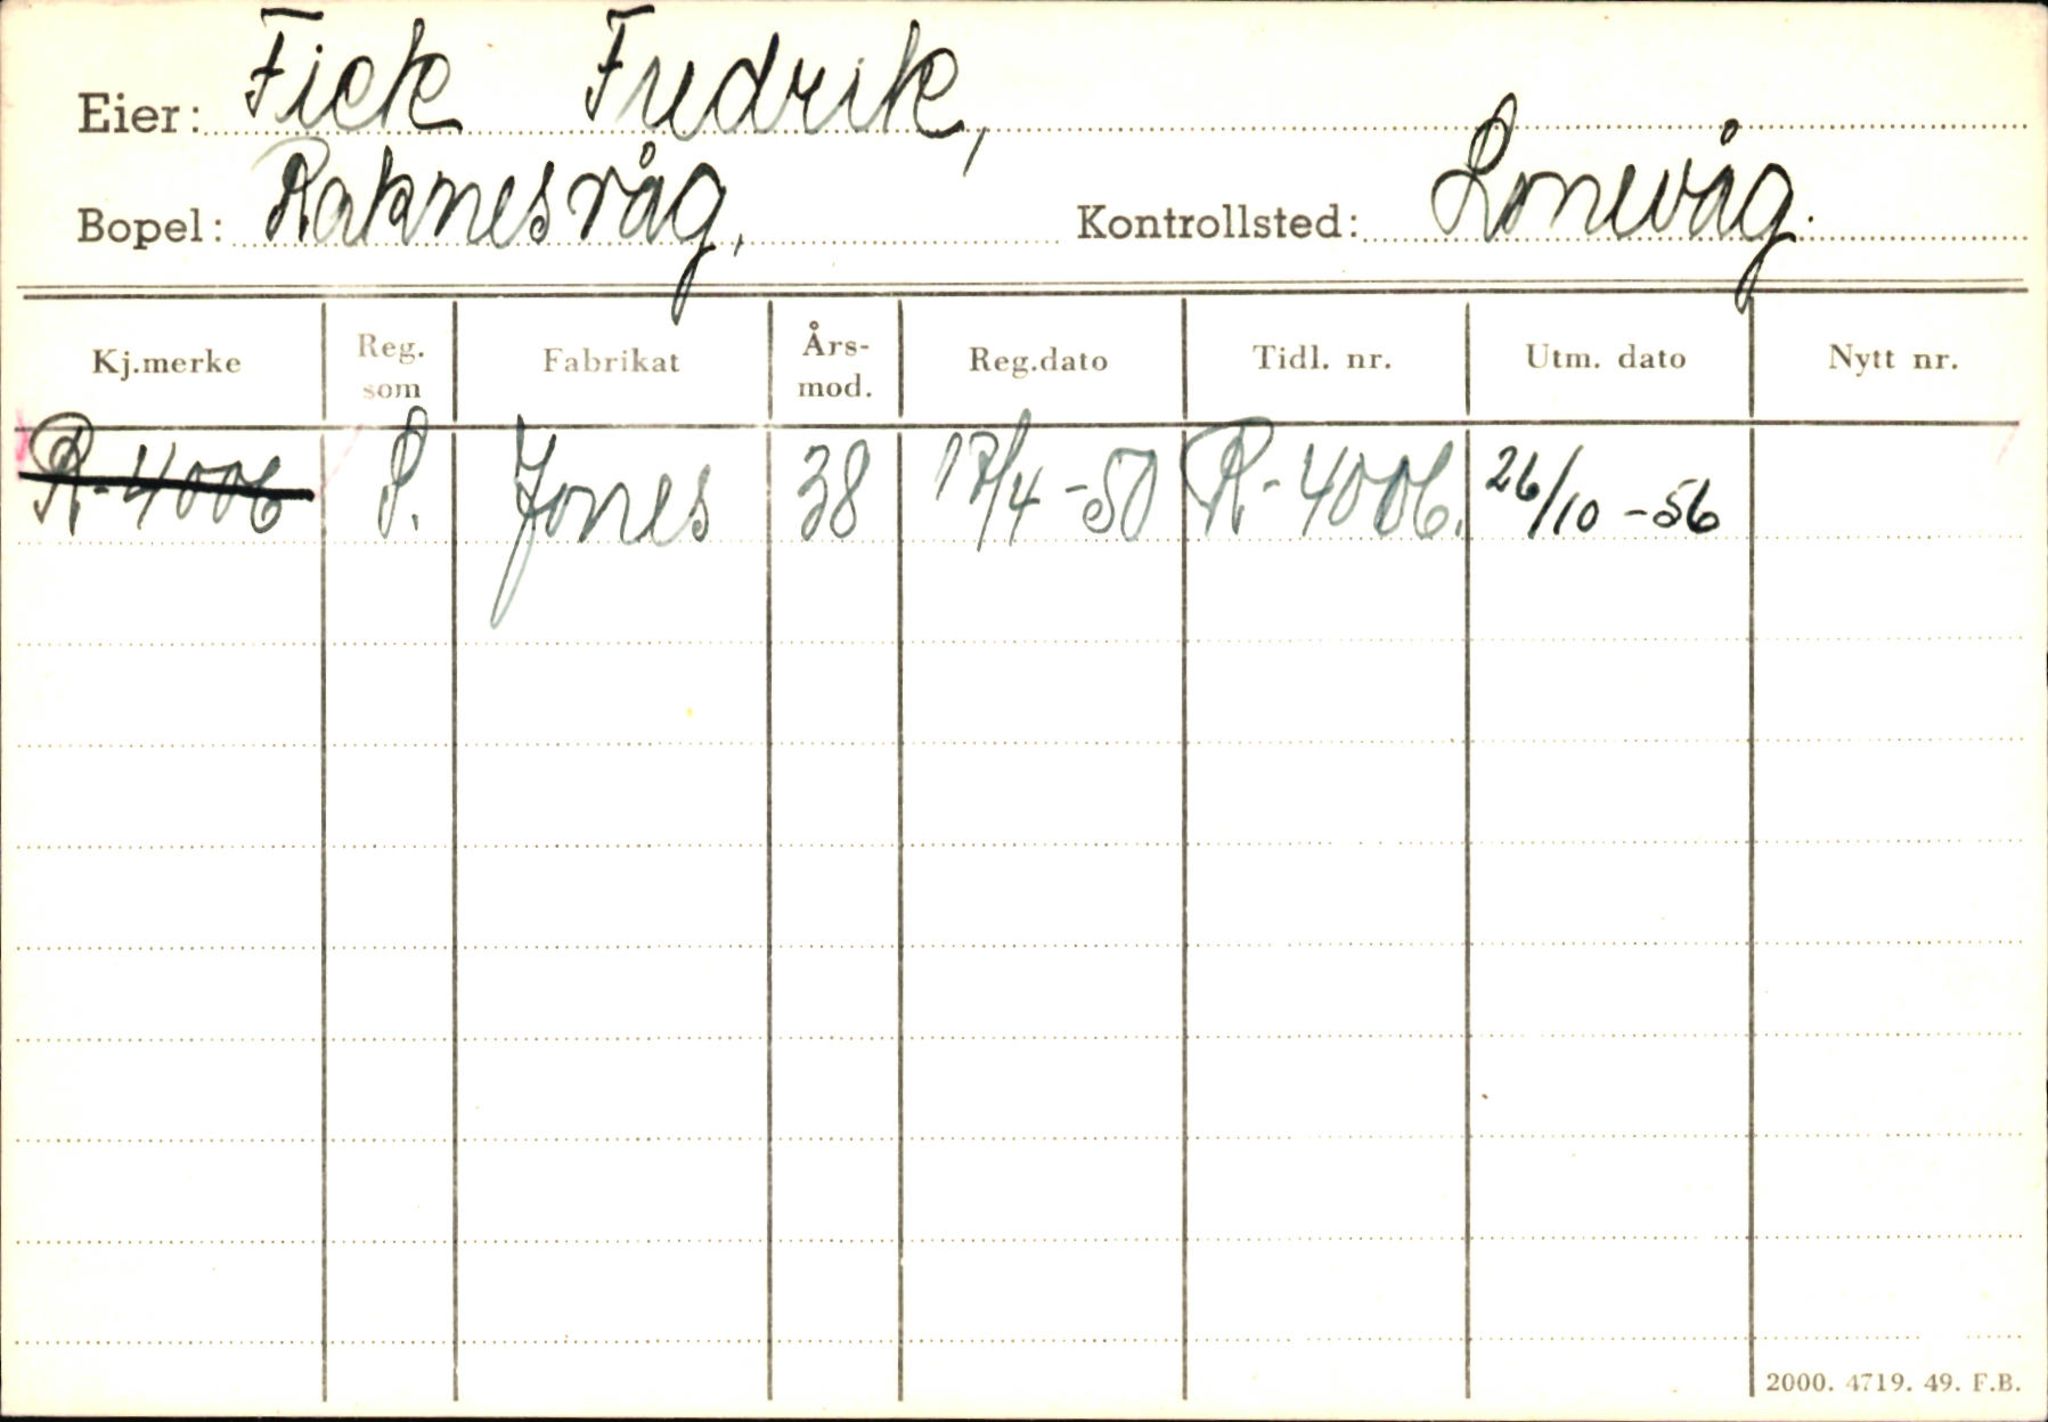 Eier: Fick Fredrik,
Bopel: Raknesvåg, Kontrollsted: Lonevåg.
Kj.merke Reg. som Fabrikat Års-mod. Reg.dato Tidl. nr. Utm. dato Nytt nr.
R-4006 P. Jones 38 17/4-50 R-4006. 26/10-56
2000. 4719. 49. F.B.